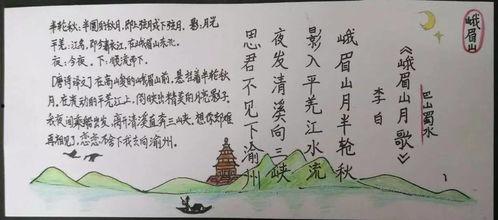 峨眉山
巴山蜀水
《峨眉山月歌》
李白
峨眉山月半轮秋
影入平羌江水流
夜发清溪向三峡
思君不见下渝州
半轮秋：半圆的秋月，即上弦月或下弦月。影：月光
平羌：江名，即今青衣江，在峨眉山东北。
夜：今夜。下：顺流而下。
[唐诗译文]在高峻的峨眉山前，悬挂着半轮秋
月。在流动的平羌江上，倒映出精美的月亮影子。
在夜间乘船出发，离开清溪直奔三峡。想你却难
再相见，恋恋不舍下我去向渝州。